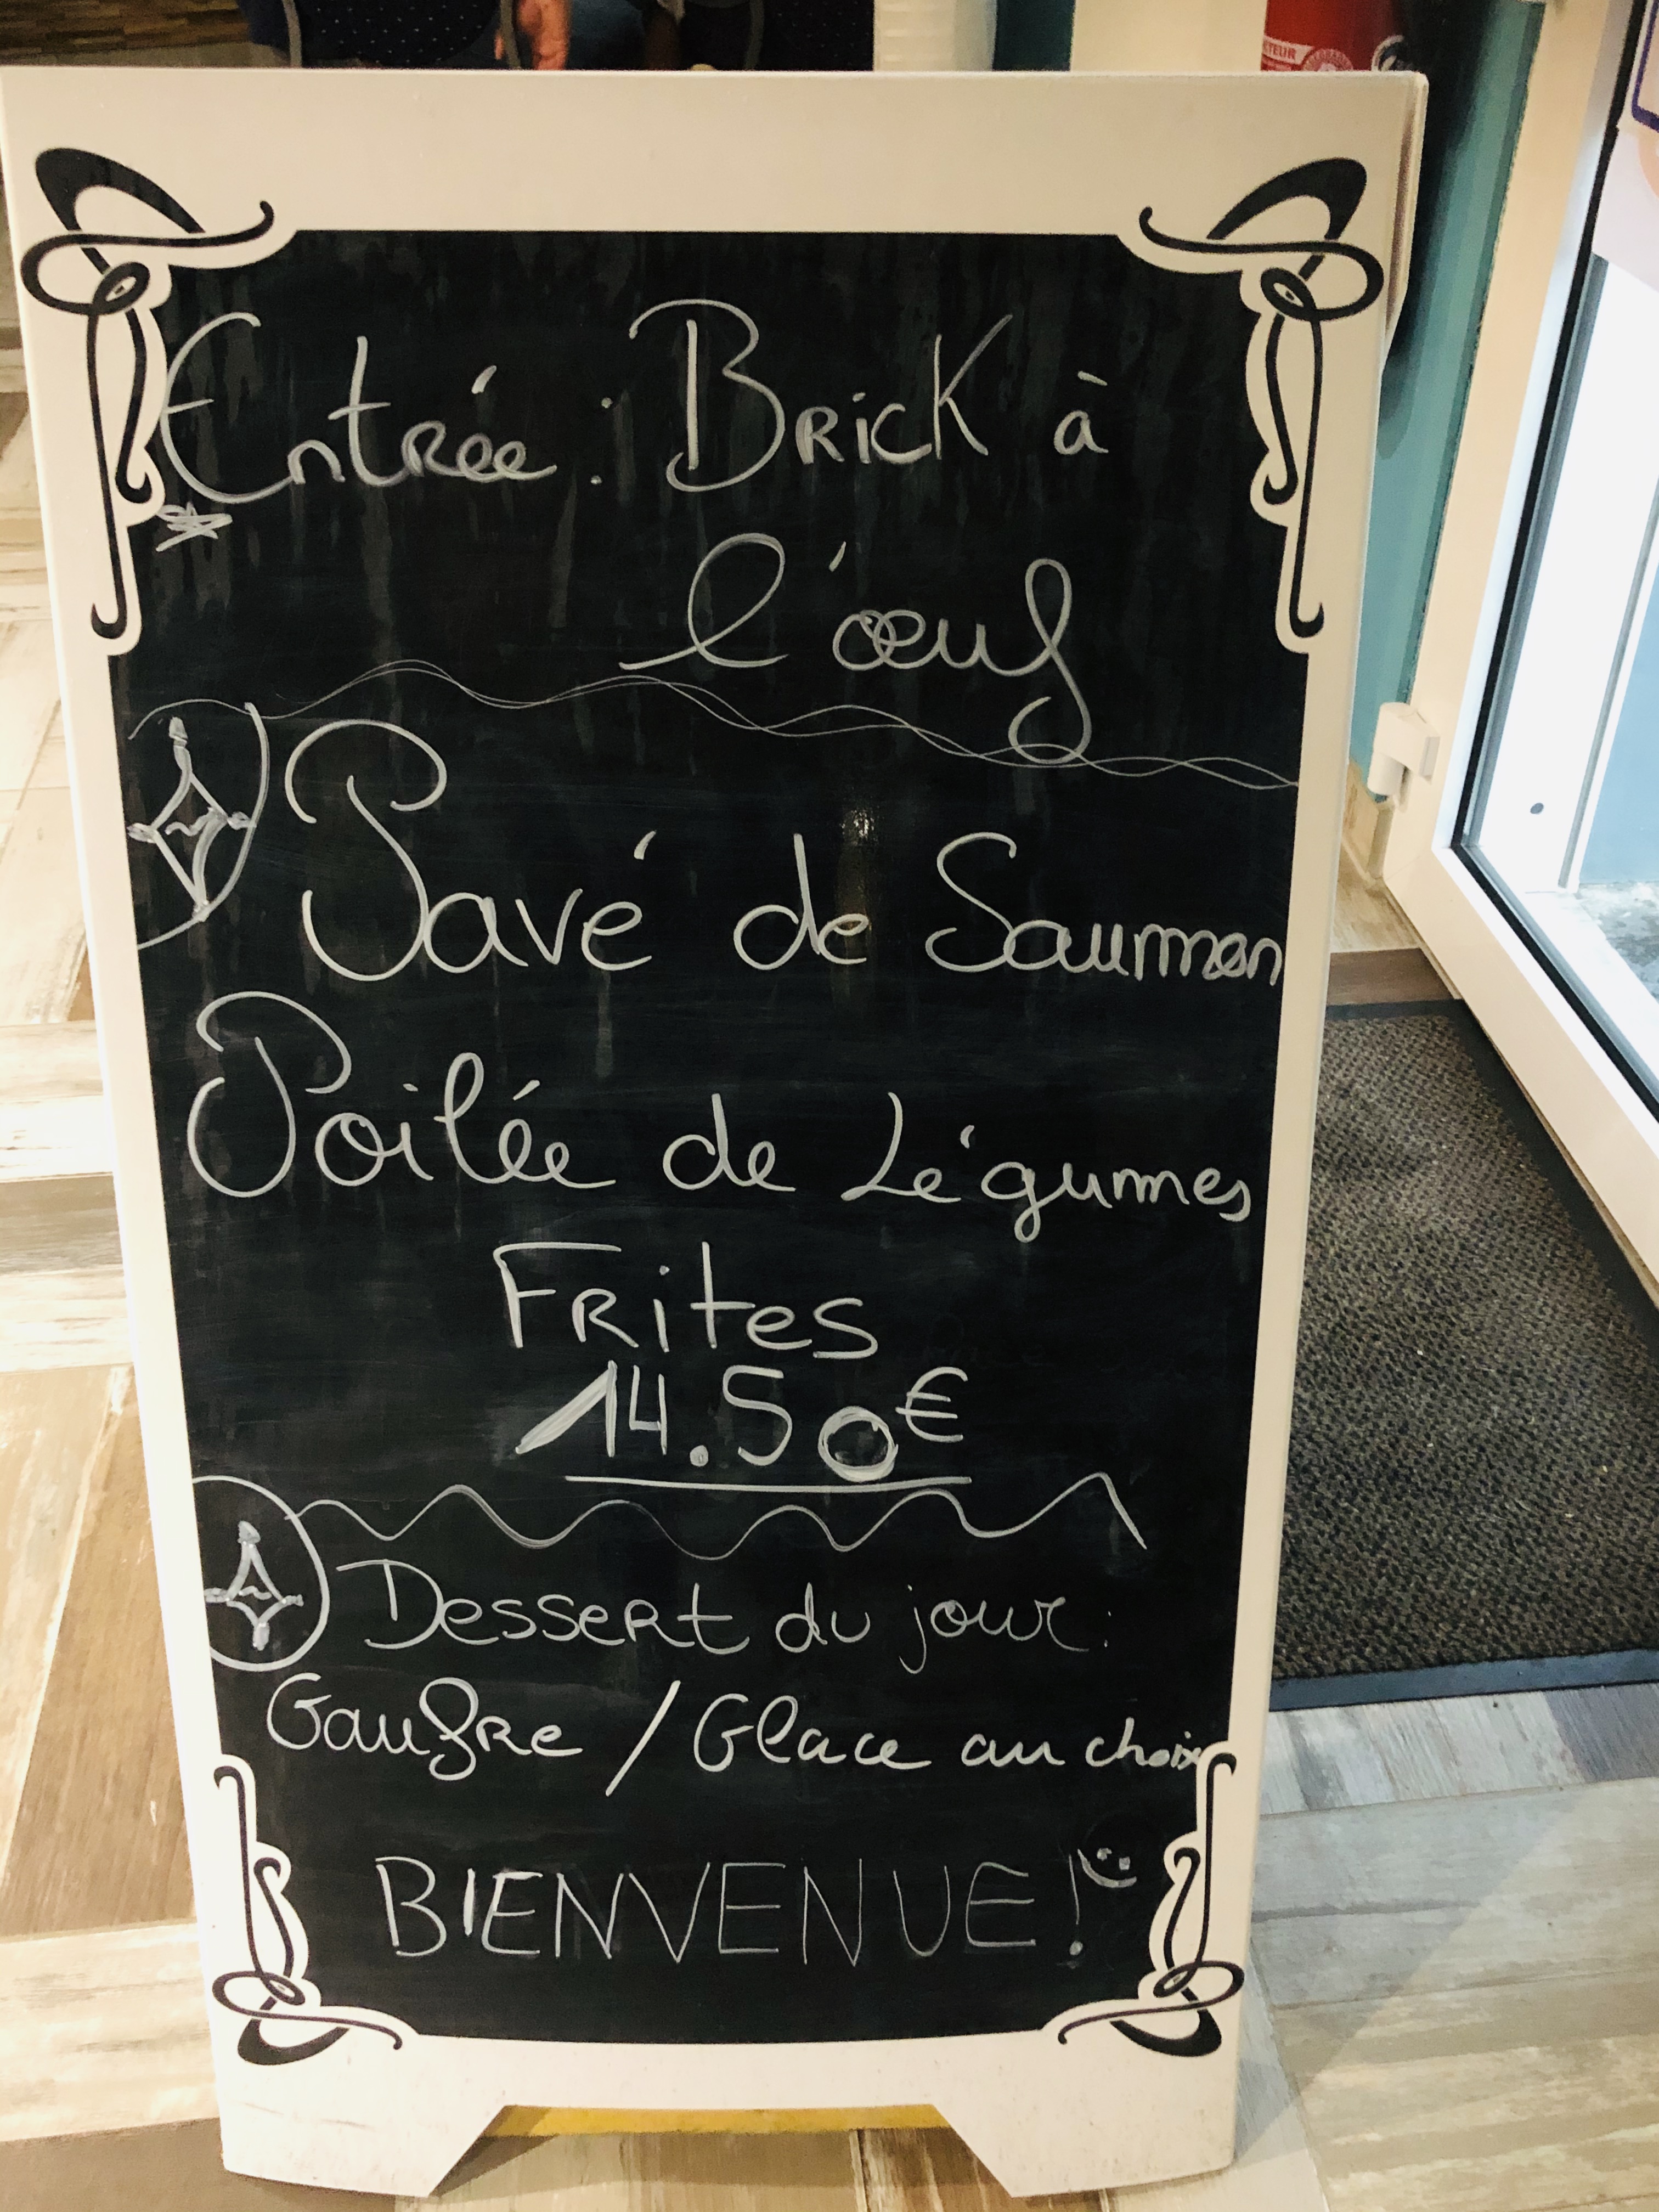 CTEUR
Entrée : Brick à
l'œuf
Pavé de Saumon
Poilée de Légumes
Frites
14.50€
Dessert du jour :
Gaufre / Glace au choix
BIENVENUE !